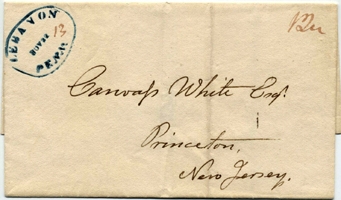 LEBANON
13
PENN.
12½
Canvass White Esqr.
Princeton,
New Jersey.